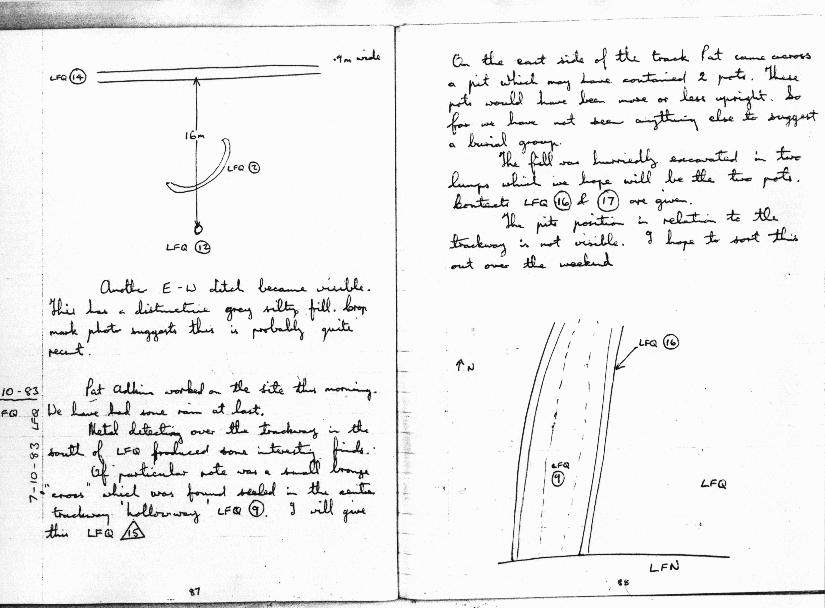 .9m wide
LFQ 14
16m
LFQ 2
LFQ 12
Another E-W ditch became visible.
This has a distinctive grey silty fill. Crop
mark photo suggests this is probably quite
recent.
10-83
FQ
7-10-83 LFQ
Pat Adkin worked on the site this morning.
We have had some rain at last.
Metal detecting over the trackway in the
south of LFQ produced some interesting finds.
Of particular note was a small bronze
"cross" which was found sealed in the centre
trackway 'hollow-way' LFQ 9. I will give
this LFQ 15
87
On the east side of the track Pat came across
a pit which may have contained 2 pots. These
pots would have been more or less upright. So
far we have not seen anything else to suggest
a burial group.
The fill was hurriedly excavated in two
lumps which we hope will be the two pots.
Contexts LFQ 16 & 17 are given.
The pits position in relation to the
trackway is not visible. I hope to sort this
out over the weekend
↑N
LFQ 16
LFQ
9
LFQ
LFN
88